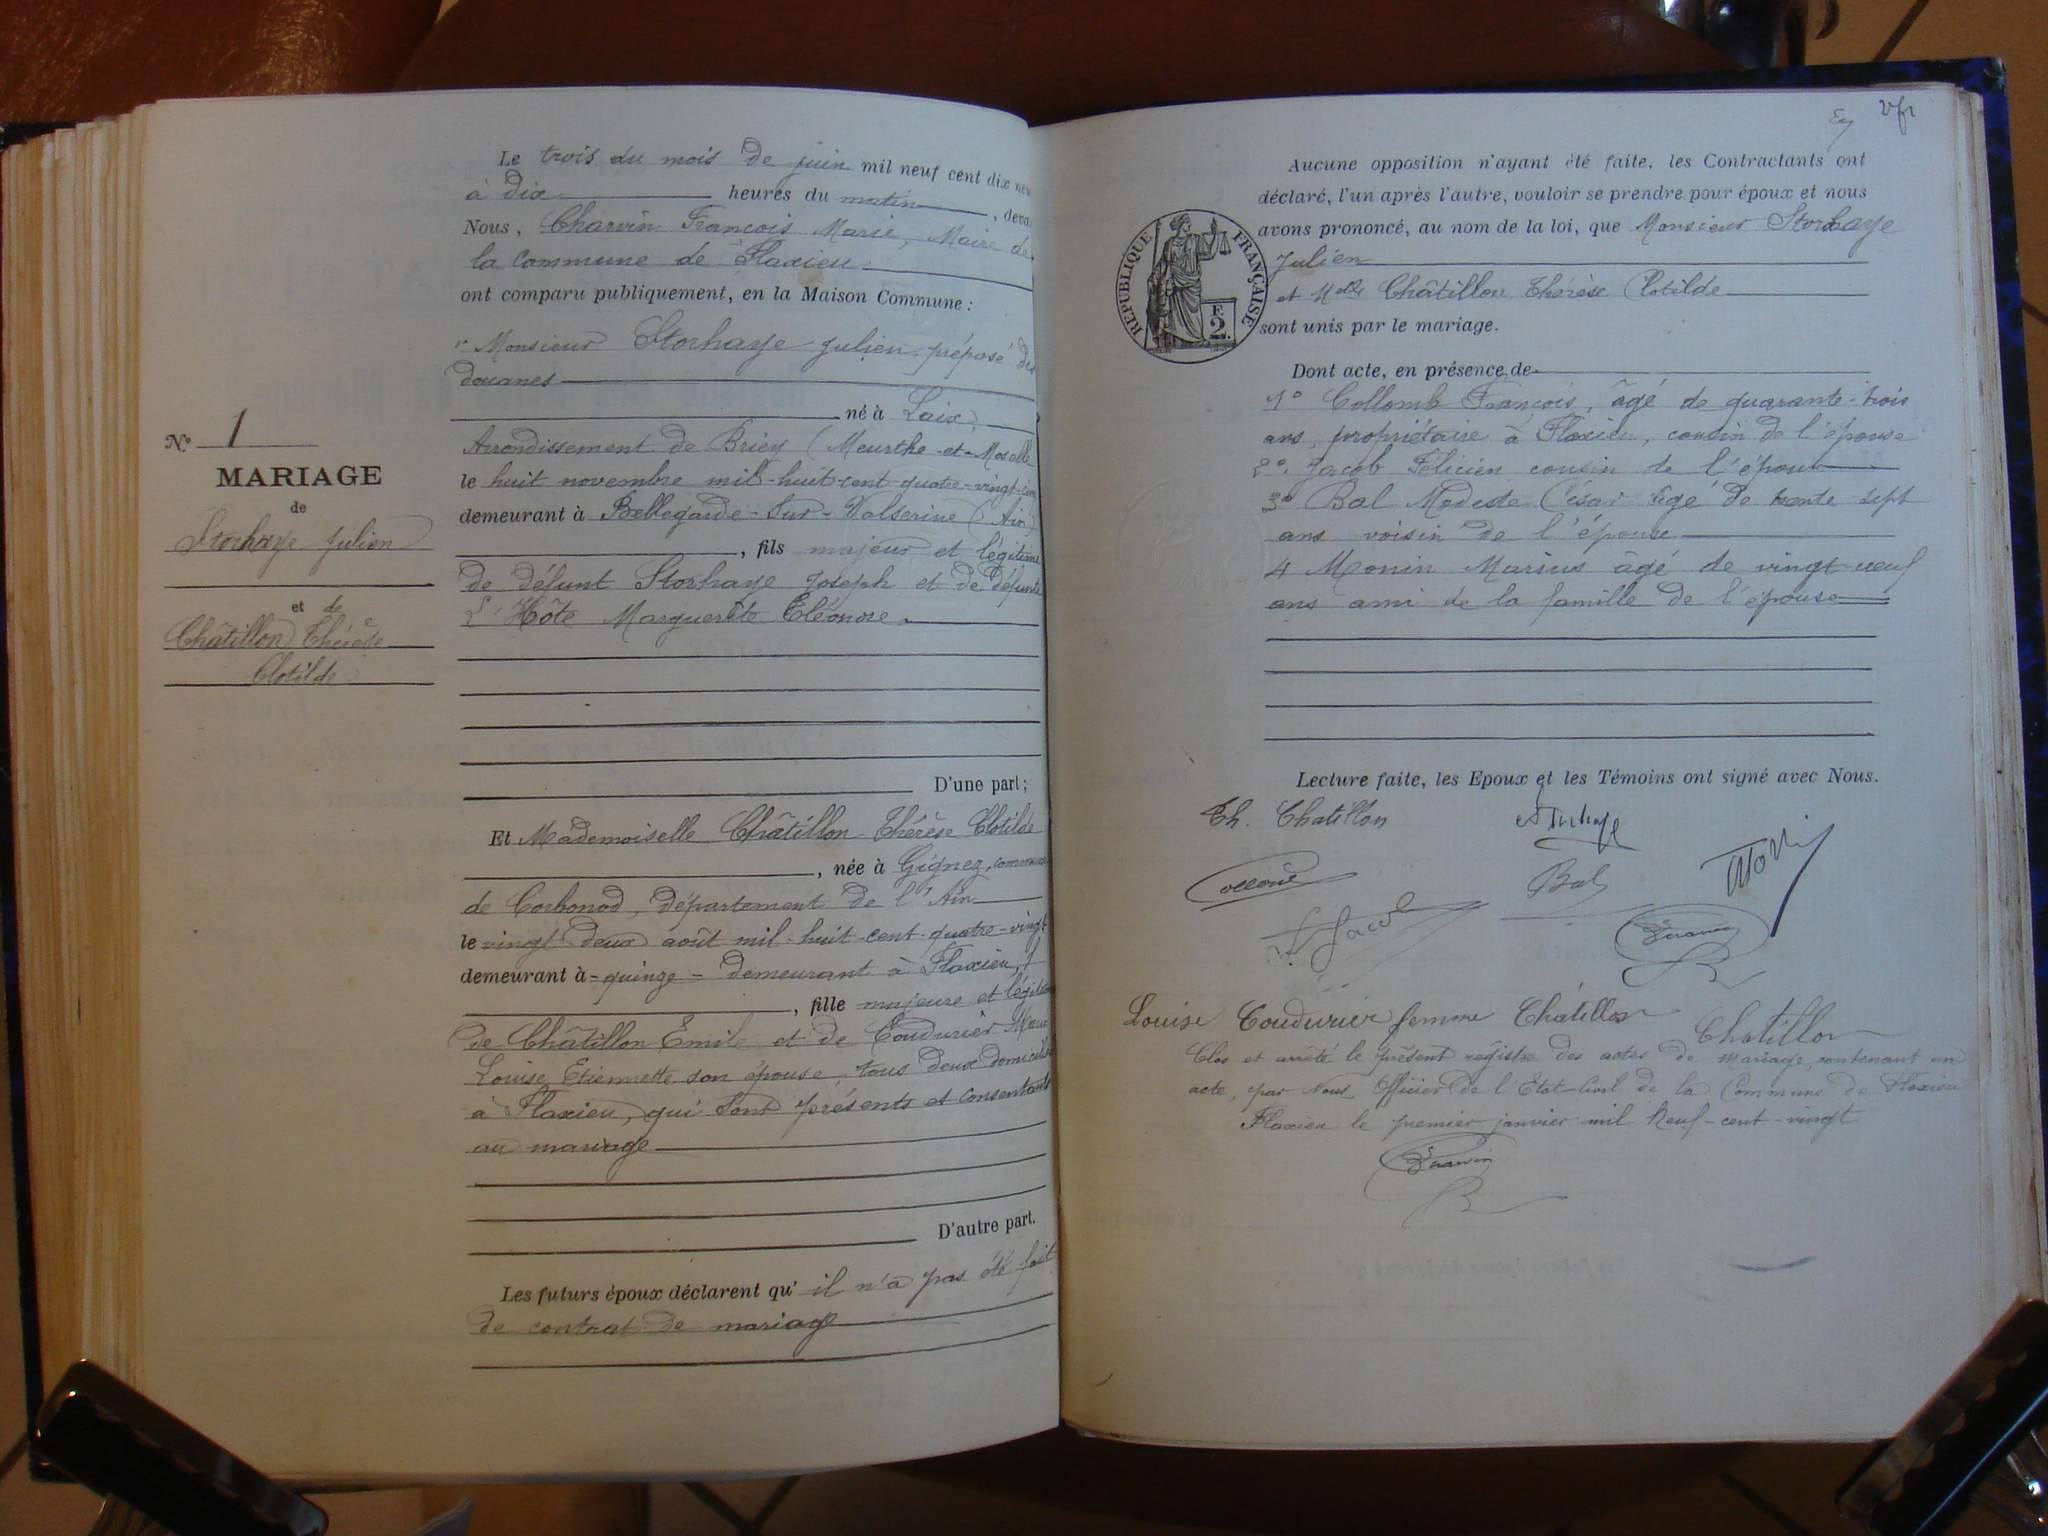 Le trois du mois de juin mil neuf cent dix neu
à dix heures du matin, deva
Nous, Charvin François Marie, Maire de
la Commune de Flaxieu
ont comparu publiquement, en la Maison Commune :
1° Monsieur Storhaye Julien, préposé des
douanes
né à Laix,
Arrondissement de Briey (Meurthe-et-Moselle
le huit novembre mil-huit-cent-quatre-vingt-
demeurant à Bellegarde-Sur-Valserine (Ain)
, fils majeur et légitime
de défunt Storhaye Joseph et de défunte
L'Hôte Marguerite Eléonore
D'une part ;
N° 1
MARIAGE
de
Storhaye Julien
et de
Châtillon Thérèse
Clotilde
Et Mademoiselle Châtillon Thérèse Clotilde
, née à Gignez, commune
de Corbonod, département de l'Ain
le vingt deux août mil-huit-cent-quatre-vingt
demeurant à -quinze- demeurant à Flaxieu,
, fille majeure et légitime
de Châtillon Emile et de Coudurier Marie
Louise Etiennette son épouse, tous deux domiciliés
à Flaxieu, qui sont présents et consentants
au mariage
D'autre part.
Les futurs époux déclarent qu' il n'a pas été fait
de contrat de mariage
Aucune opposition n'ayant été faite, les Contractants ont
déclaré, l'un après l'autre, vouloir se prendre pour époux et nous
avons prononcé, au nom de la loi, que Monsieur Storhaye
Julien
et Melle Châtillon Thérèse Clotilde
sont unis par le mariage.
RÉPUBLIQUE FRANÇAISE
F.
2.
Dont acte, en présence de
1° Collomb François, âgé de quarante-trois
ans, propriétaire à Flaxieu, cousin de l'épouse
2°. Jacob Félicien cousin de l'époux
3° Bal Modeste César âgé de trente sept
ans voisin de l'épouse
4 Monin Marius âgé de vingt-neuf
ans ami de la famille de l'épouse
Lecture faite, les Epoux et les Témoins ont signé avec Nous.
Th. Chatillon
Bal
F Jacob
Louise Coudurier femme Châtillon Chatillon
Clos et arrêté le présent registre des actes de mariage, contenant un
acte, par Nous, Officier de l'Etat-Civil de la Commune de Flaxieu
Flaxieu le premier janvier mil neuf-cent-vingt
Charvin